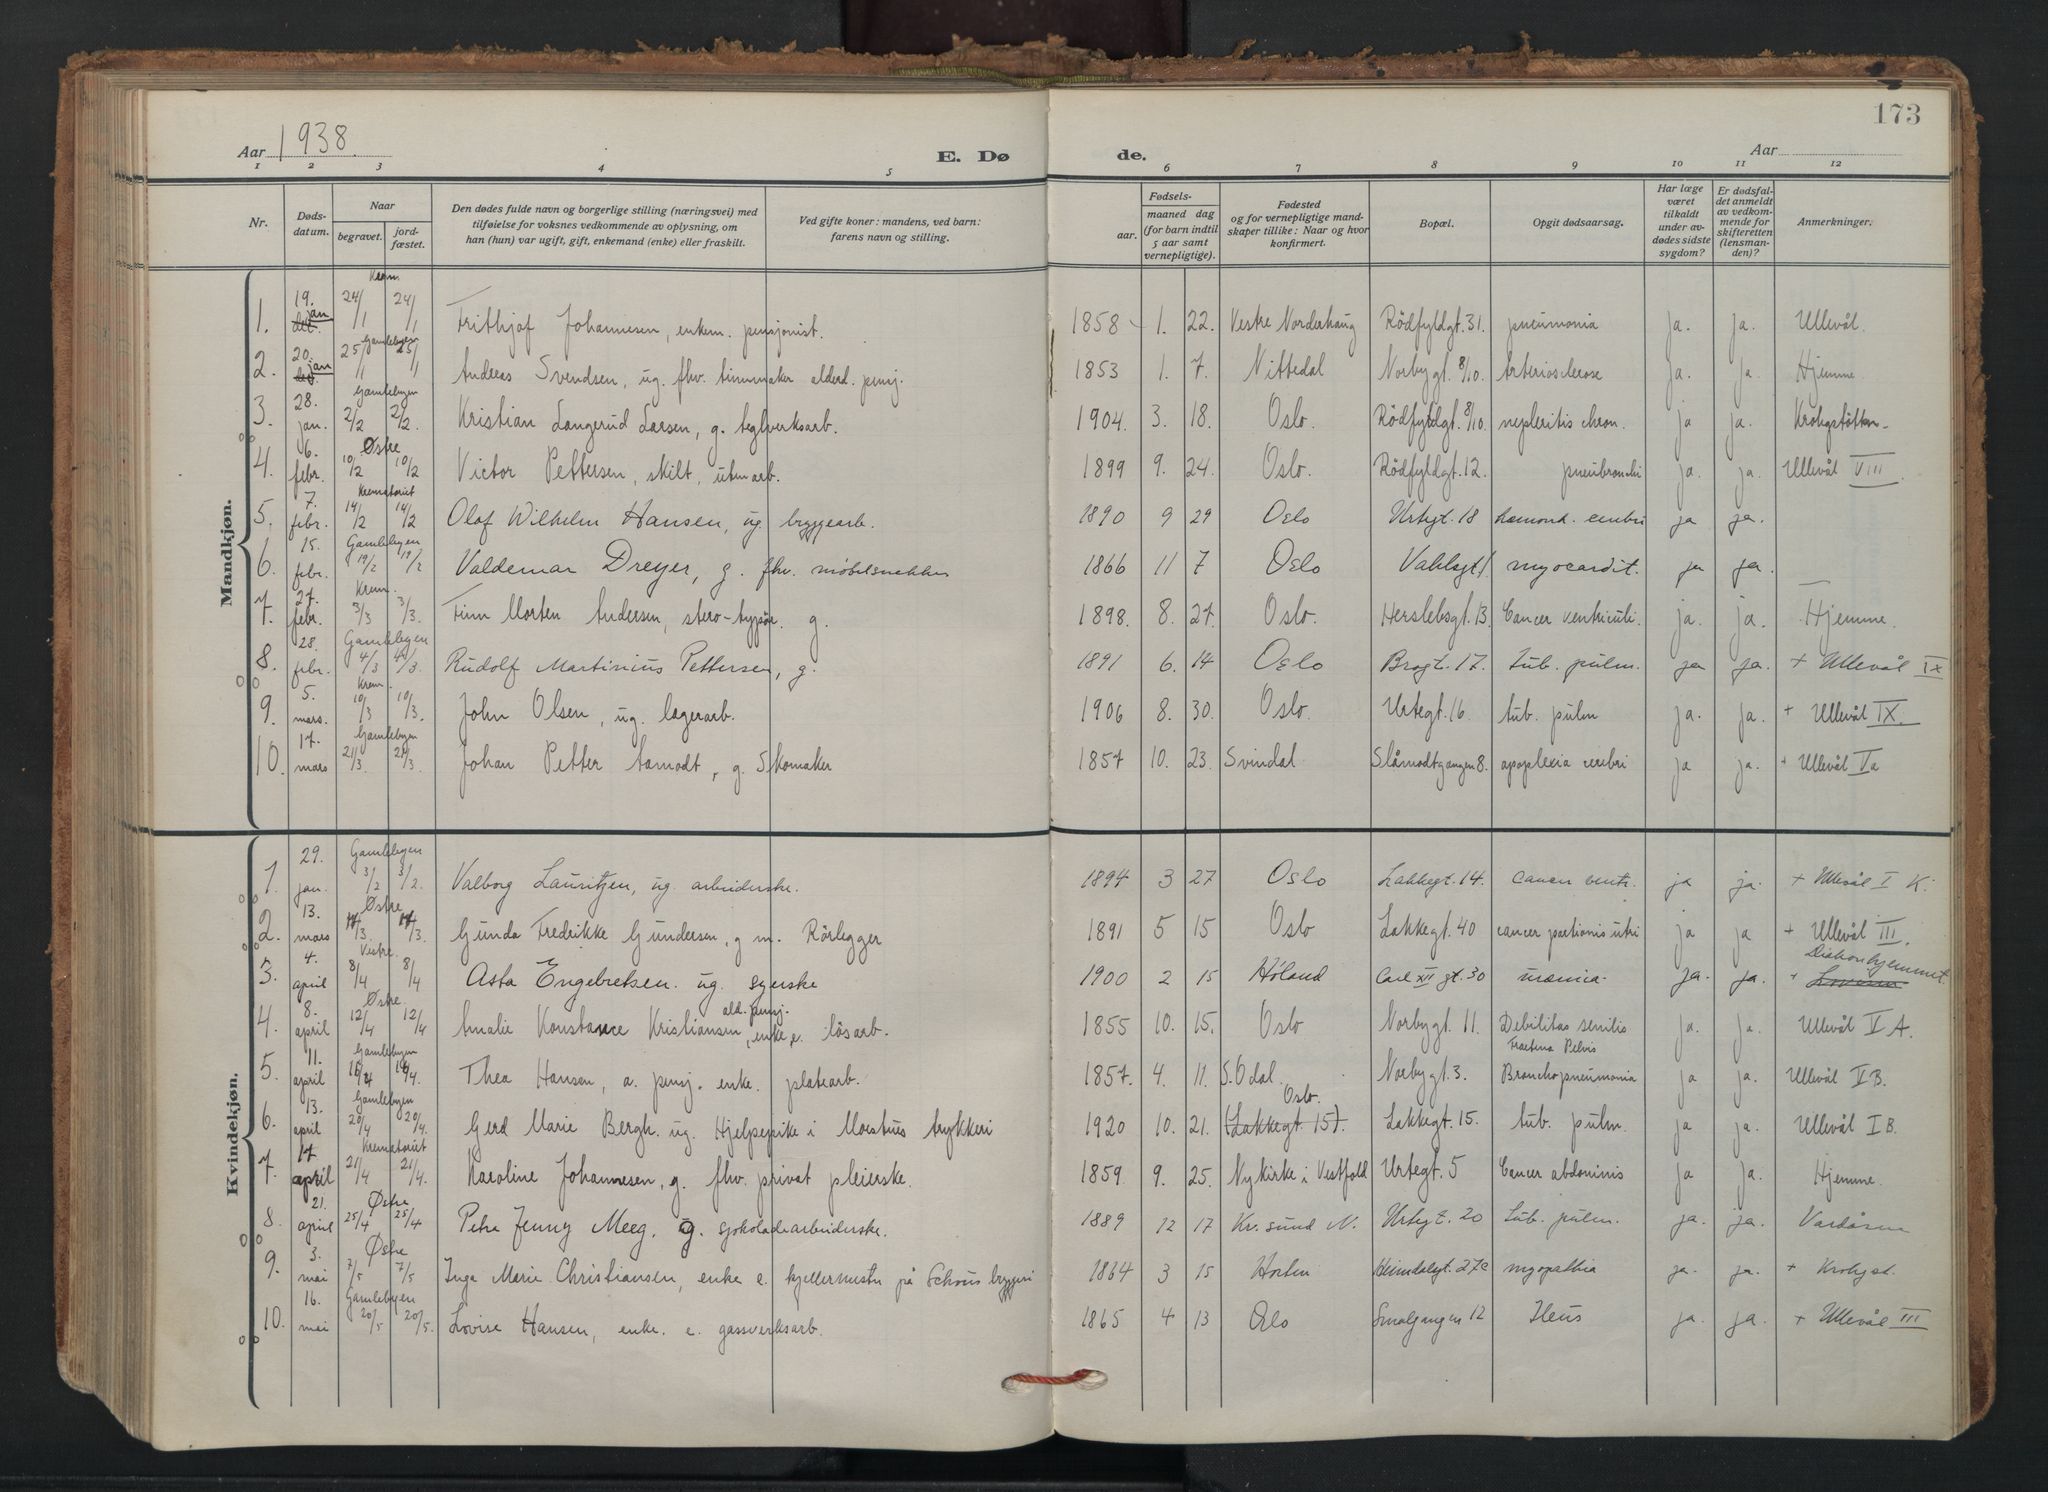 173
Aar 1938.
E. Dø de.
Aar
1 2 3 4 5 6 7 8 9 10 11 12
Nr.
Døds-
datum.
Naar
begravet.
jord-
fæstet.
Den dødes fulde navn og borgerlige stilling (næringsvei) med
tilføielse for voksnes vedkommende av oplysning, om
han (hun) var ugift, gift, enkemand (enke) eller fraskilt.
Ved gifte koner: mandens, ved barn:
farens navn og stilling.
Fødsels-
aar.
maaned dag
(for barn indtil
5 aar samt
vernepligtige).
Fødested
og for vernepligtige mand-
skaper tillike: Naar og hvor
konfirmert.
Bopæl.
Opgit dødsaarsag.
Har læge
været
tilkaldt
under av-
dødes sidste
sygdom?
Er dødsfal-
det anmeldt
av vedkom-
mende for
skifteretten
(lensman-
den)?
Anmerkninger.
Mandkjøn.
Krem.
1. 19. jan 24/1 24/1 Frithjof Johannesen, enkem. pensjonist. 1858 1. 22. Vestre Norderhaug Rödfyldgt. 31. pneumonia ja. ja. Ullevål.
Gamlebyen
2. 20. jan 25/1 25/1 Andreas Svendsen, ug. fhv. alderd. pensj. 1853 1. 7. Nittedal Norbygt. 8/10. Arteriosclerose ja. ja. Hjemme.
Gamlebyen
3. 28. jan. 2/2 2/2. Kristian Langerud Larsen, g. teglverksarb. 1904. 3. 18. Oslo. Rödfyldgt. 8/10. chron. ja ja. Krohgstøtten
Østre
4. 6. febr. 10/2 10/2 Victor Pettersen, skilt, utmarb. 1899 9. 24. Oslo. Rödfyldgt. 12. ja. ja. Ullevål VIII
Krematoriet
5. 7. febr. 14/2 14/2 Olaf Wilhelm Hansen, ug. bryggearb. 1890 9 29 Oslo Urtegt. 18 ja ja.
Gamlebyen
6. 15. febr. 19/2 19/2 Valdemar Dreyer, g. fhv. møbelsnekker 1866 11 7 Oslo Vahlsgt. 1 myocardit. ja ja.
Krem.
7. 27. febr. 3/3 3/3. Finn Morten Andersen, g. 1898. 8. 27. Oslo. Herslebsgt. 13. Cancer ventriculi. ja. ja. Hjemme.
Gamlebyen
8. 28. febr. 4/3 4/3. Rudolf Martinius Pettersen, g. 1891 6. 14 Oslo Brogt. 17. tub. pulm. ja ja. + Ullevål IX
Krem.
9. 5. mars. 10/3 10/3. John Olsen, ug. lagerarb. 1906 8. 30. Oslo. Urtegt. 16. tub. pulm ja. ja. + Ullevål IX.
Gamlebyen
10. 17. mars 21/3. 21/3. Johan Petter Aamodt, g. Skomaker 1857 10. 23. Svindal. Slåmodtgangen 8. apoplexia cerebri ja ja. + Ullevål Va
Kvindekjøn.
Gamlebyen
1. 29. jan. 3/2 3/2. Valborg Lauritzen, ug. arbeiderske. 1894 3 27 Oslo Lakkegt. 14. cancer ventr. ja ja. + Ullevål I K.
Østre
2. 13. mars 17/3. 17/3. Gunda Fredrikke Gundersen, g m. Rörlegger 1891 5 15 Oslo Lakkegt. 40 cancer portionis utri ja ja + Ullevål III.
Vestre.
3. 4. april 8/4 8/4 Asta Engebretsen. ug. syerske 1900 2 15 Høland Carl XII gt. 30 uræmia. ja. ja. + Diakonhjemmet.
Østre
4. 8. april 12/4 12/4 Amalie Konstance Kristiansen, ald. pensj. enke e. løsarb. 1855 10. 15. Oslo Norbygt. 11. Debilitas senilis ja. ja. Ullevål V A.
Gamlebyen
5. 11. april 16/4 16/4. Thea Hansen, a. pensj. enke. platearb. 1857. 4. 11. S. Odal. Norbygt. 3. Fractura Pelvis Bronchopneumonia ja ja. Ullevål V B.
Gamlebyen
6. 13. april 20/4 20/4. Gerd Marie Bergh. ug. Hjelpepike i Moestues trykkeri 1920 10. 21. Oslo. (Lakkegt. 15). Lakkegt. 15. tub. pulm. ja ja. Ullevål I B.
Krematoriet
7. 17. april 21/4 21/4. Karoline Johannesen, g. fhv. privat pleierske. 1859. 9. 25. Nykirke i Vestfold Urtegt. 5 Cancer abdominis ja ja. Hjemme.
Østre
8. 21. april 25/4 25/4 Petra Jenny Meeg. g. sjokoladearbeiderske. 1889 12 17 Kr. sund N. Urtegt. 20 tub. pulm. ja. ja. Vardåsen
Østre
9. 3. mai 7/5 7/5 Inga Marie Christiansen, enke e. kjellermester på Schous bryggeri 1864 3 15 Horten Heimdalsgt. 27c myopathia ja. ja. + Krohgst.
Gamlebyen
10. 16. mai 20/5 20/5. Lovise Hansen, enke. e. gassverksarb. 1865 4 13 Oslo Smalgangen 12 Ileus ja. ja. + Ullevål III